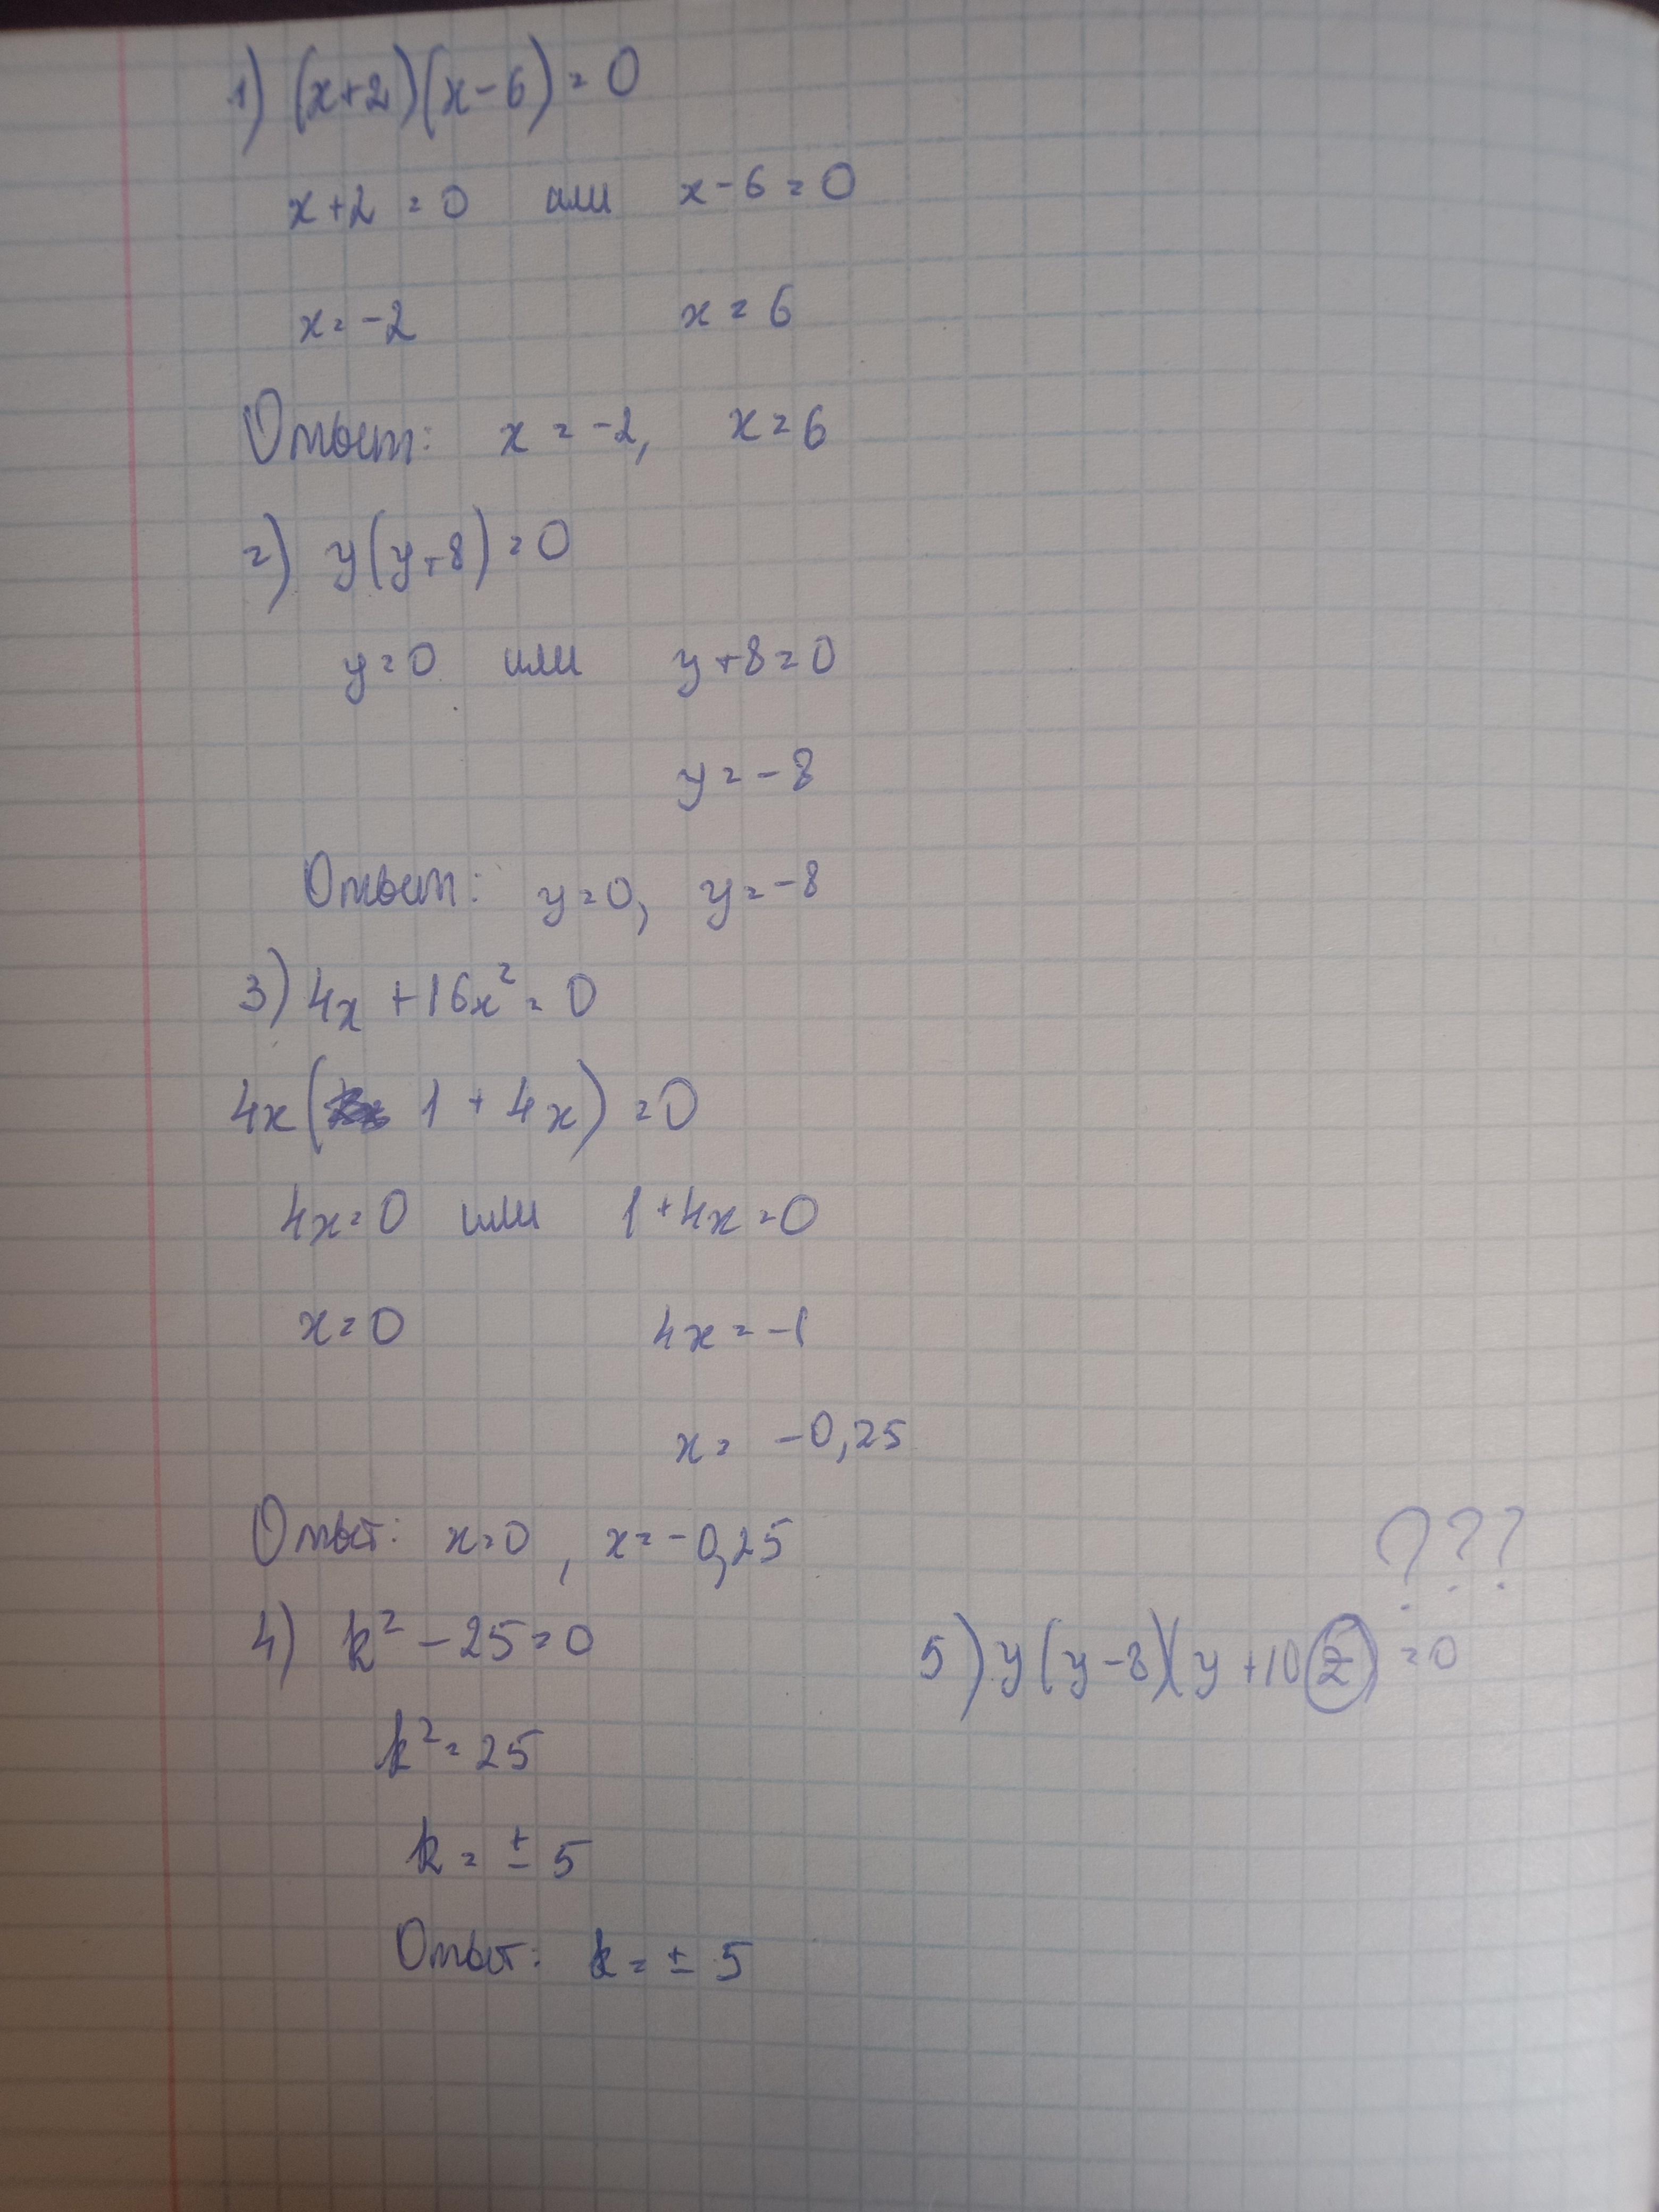 1) (x+2)(x-6)=0
x+2=0 или x-6=0
x=-2 x=6
Ответ: x=-2, x=6
2) y(y+8)=0
y=0 или y+8=0
y=-8
Ответ: y=0, y=-8
3) 4x+16x²=0
4x(1+4x)=0
4x=0 или 1+4x=0
x=0 4x=-1
x= -0,25
Ответ: x=0, x=-0,25
4) k²-25=0
k²=25
k=±5
Ответ: k=±5
???
5) y(y-8)(y+10z)=0